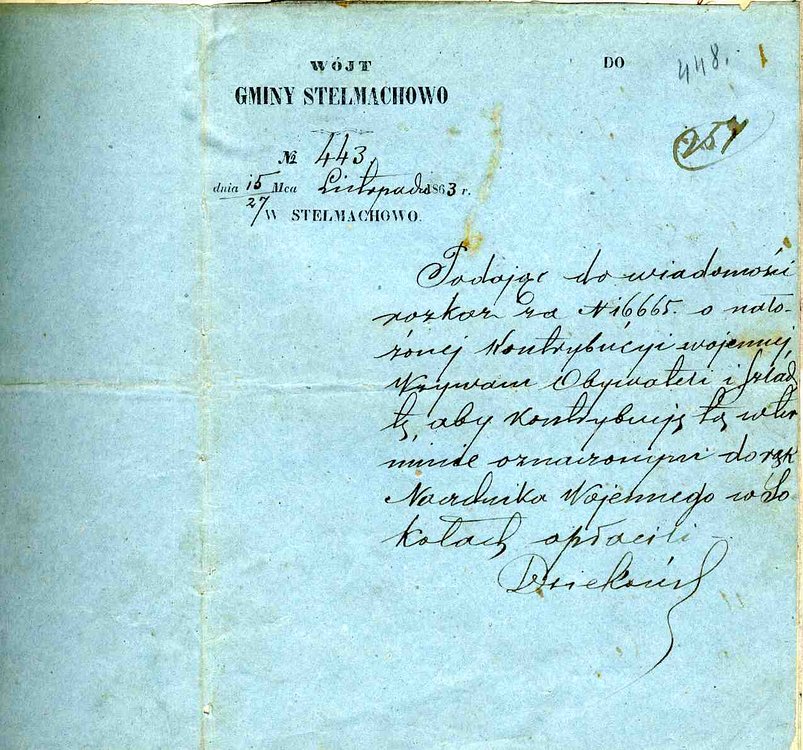 WÓJT
DO
448.
GMINY STELMACHOWO
257
№ 443.
dnia 15/27 Mca Listopada 1863 r.
W STELMACHOWO.
Podając do wiadomości
rozkaz za N 16665. o nało-
żonej Kontrybucyi wojennej
Wzywam Obywateli i Szlach
tę, aby kontrybucję tą w ter
minie oznaczonym do rąk
Naczelnika Wojennego w So
kołach opłacili